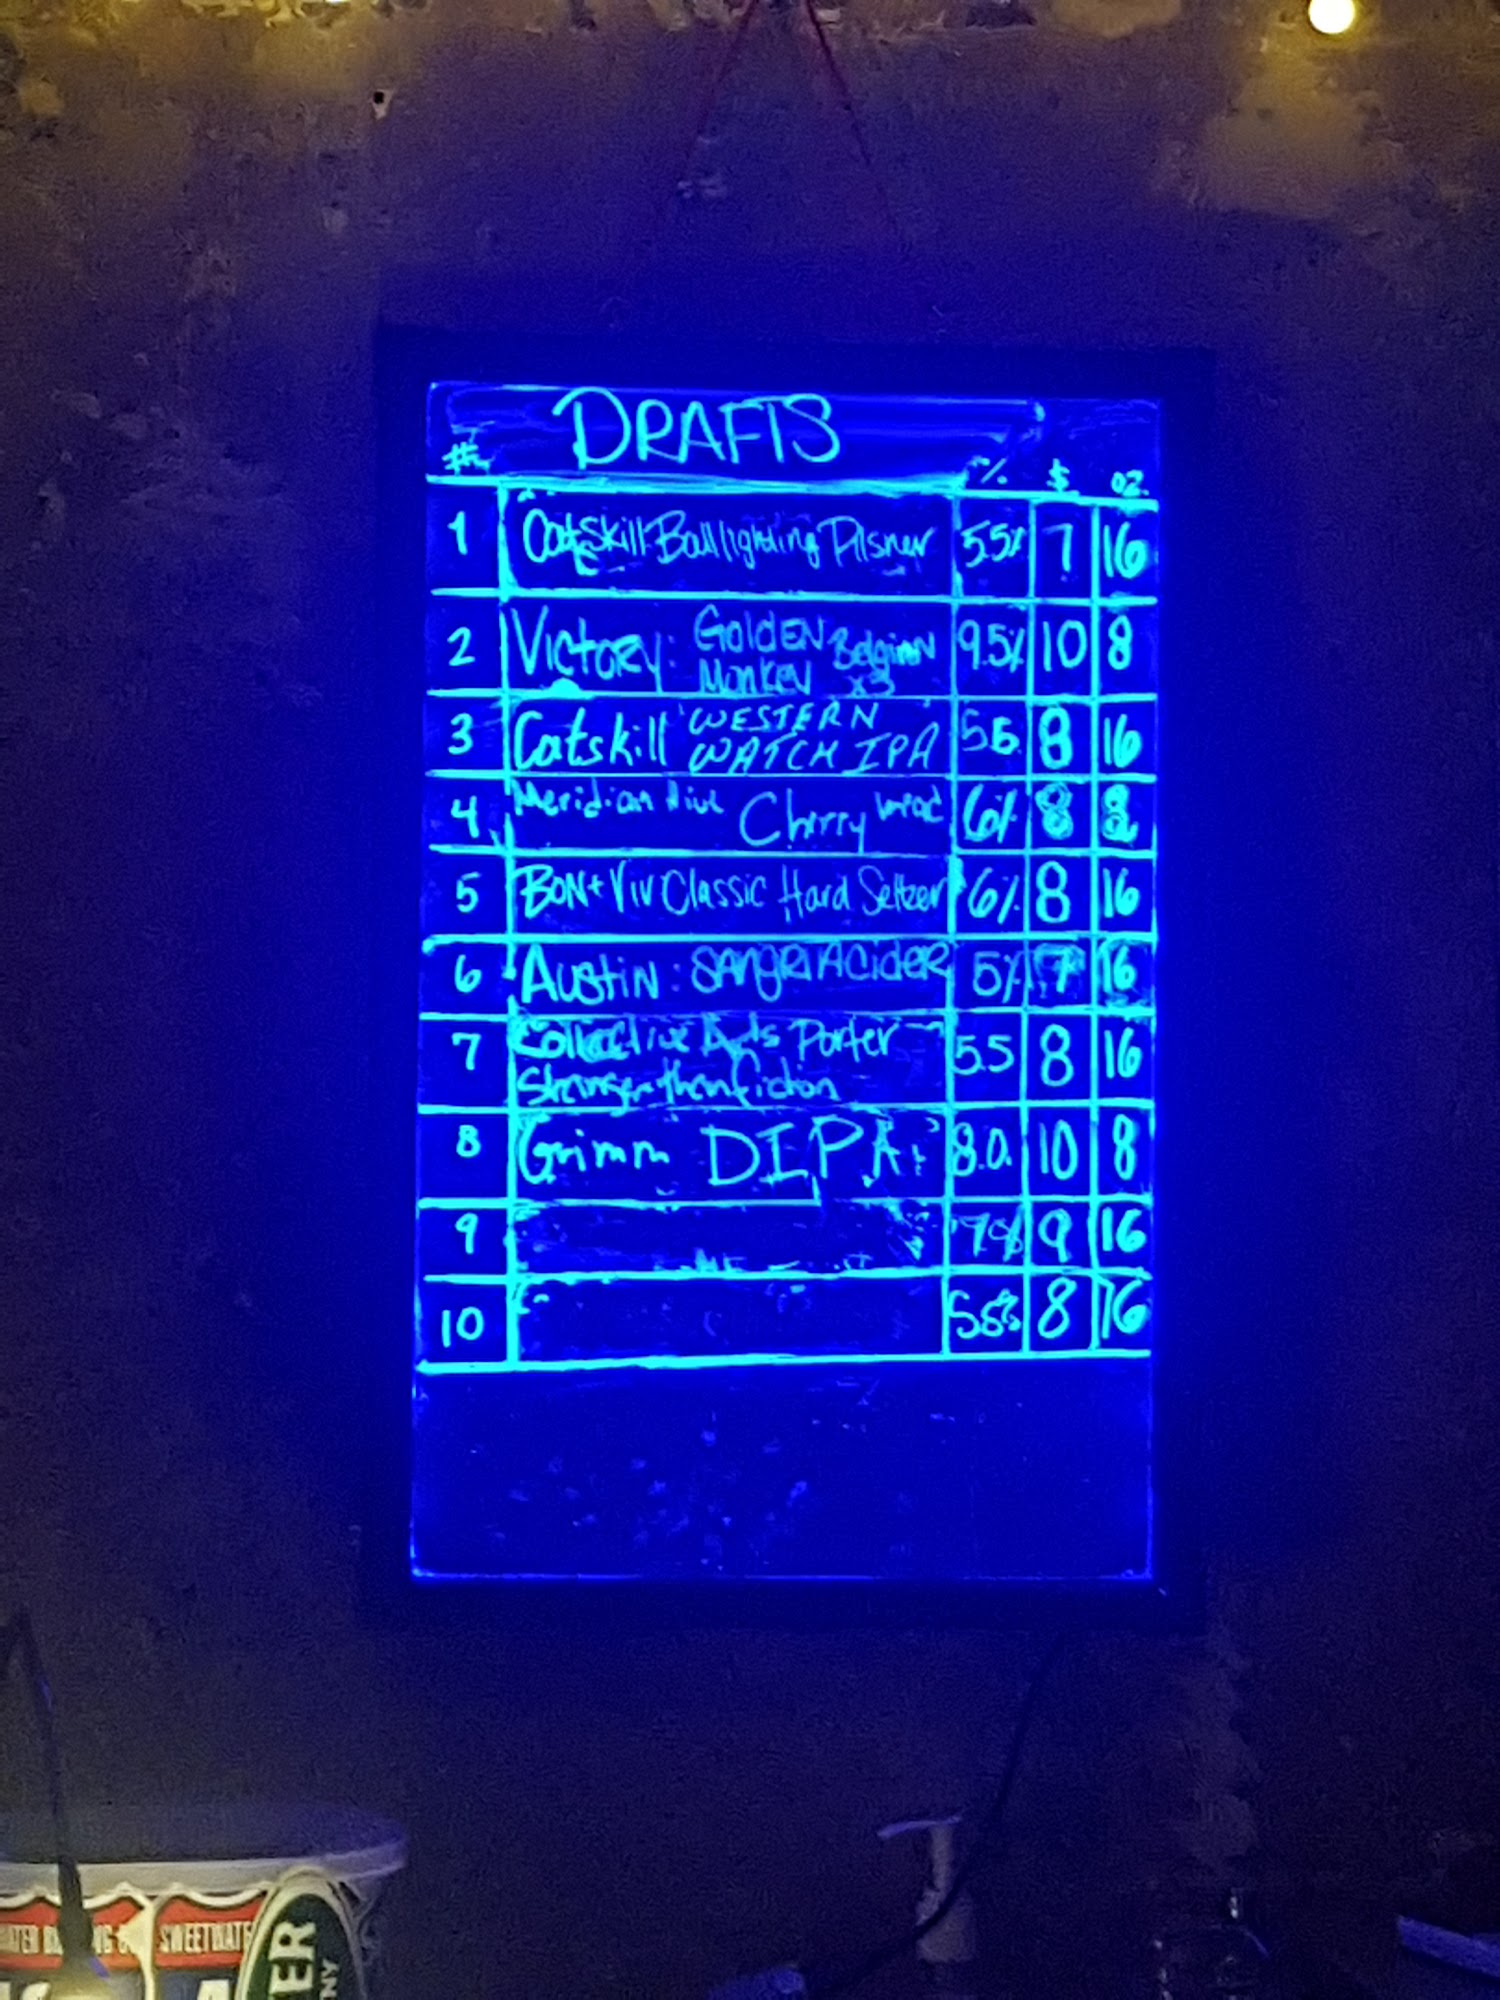 DRAFTS
# % $ oz.
1 Catskill Ball lightning Pilsner 5.5% 7 16
2 VICTORY: GOLDEN MONKEY Belgian x3 9.5% 10 8
3 Catskill WESTERN WATCH IPA 5.5 8 16
4 Meridian Hive Cherry 6% 8 8
5 BON+VIV Classic Hard Seltzer 6% 8 16
6 AUSTIN: SANGRIA CIDER 5% 7 16
7 Collective Arts Porter
Stranger than fiction 5.5 8 16
8 Grimm DIPA 8.0. 10 8
9 9 16
10 8 16
SWEETWATE
ER
NY